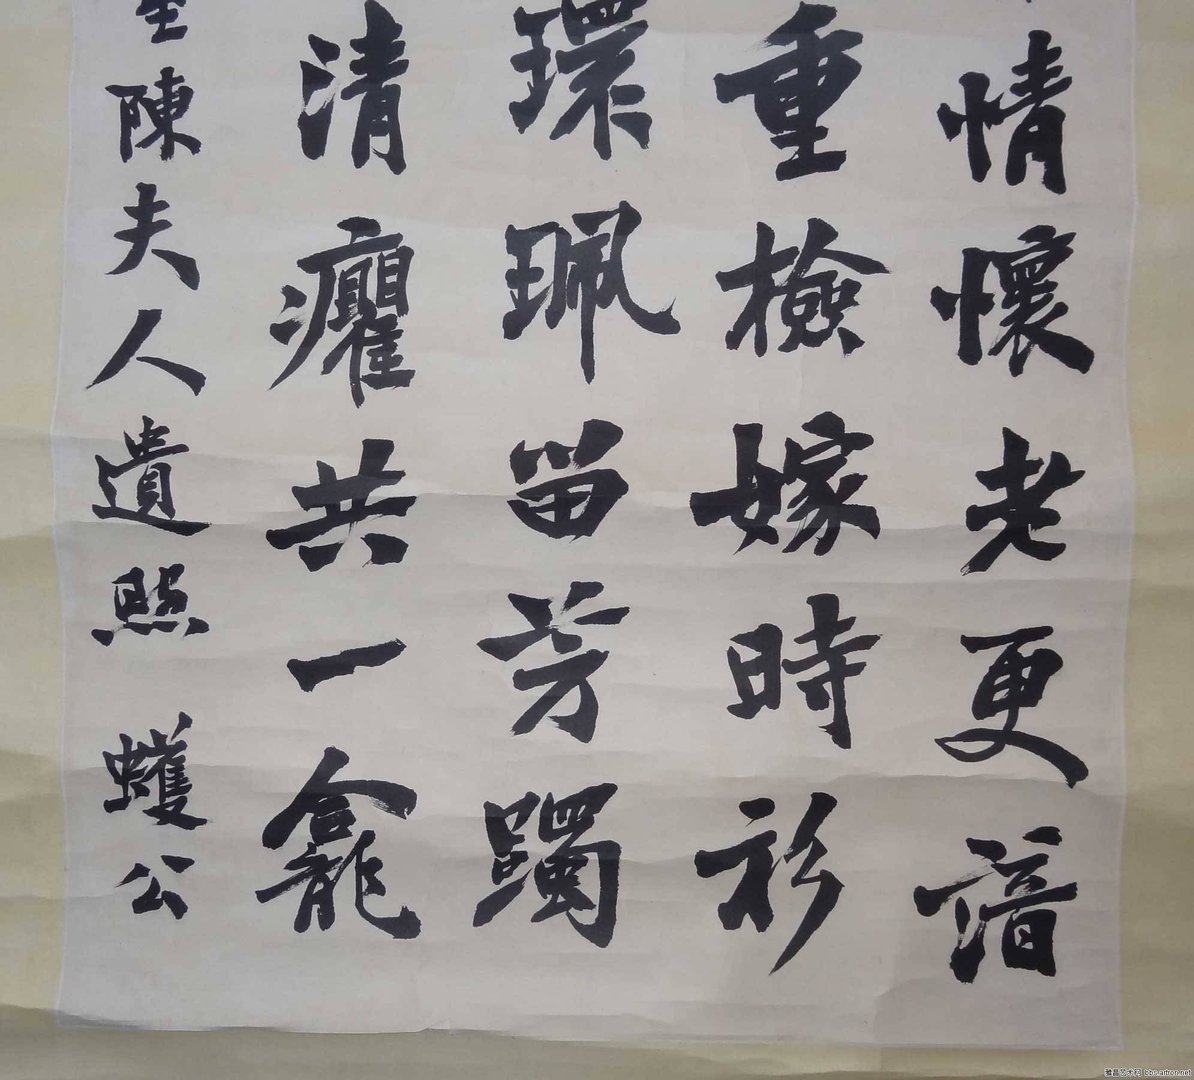 情懷老更諳
重檢嫁時衫
環珮留芳躅
清癯共一龕
陳夫人遺照 蠖公
雅昌艺术网 bbs.artron.net